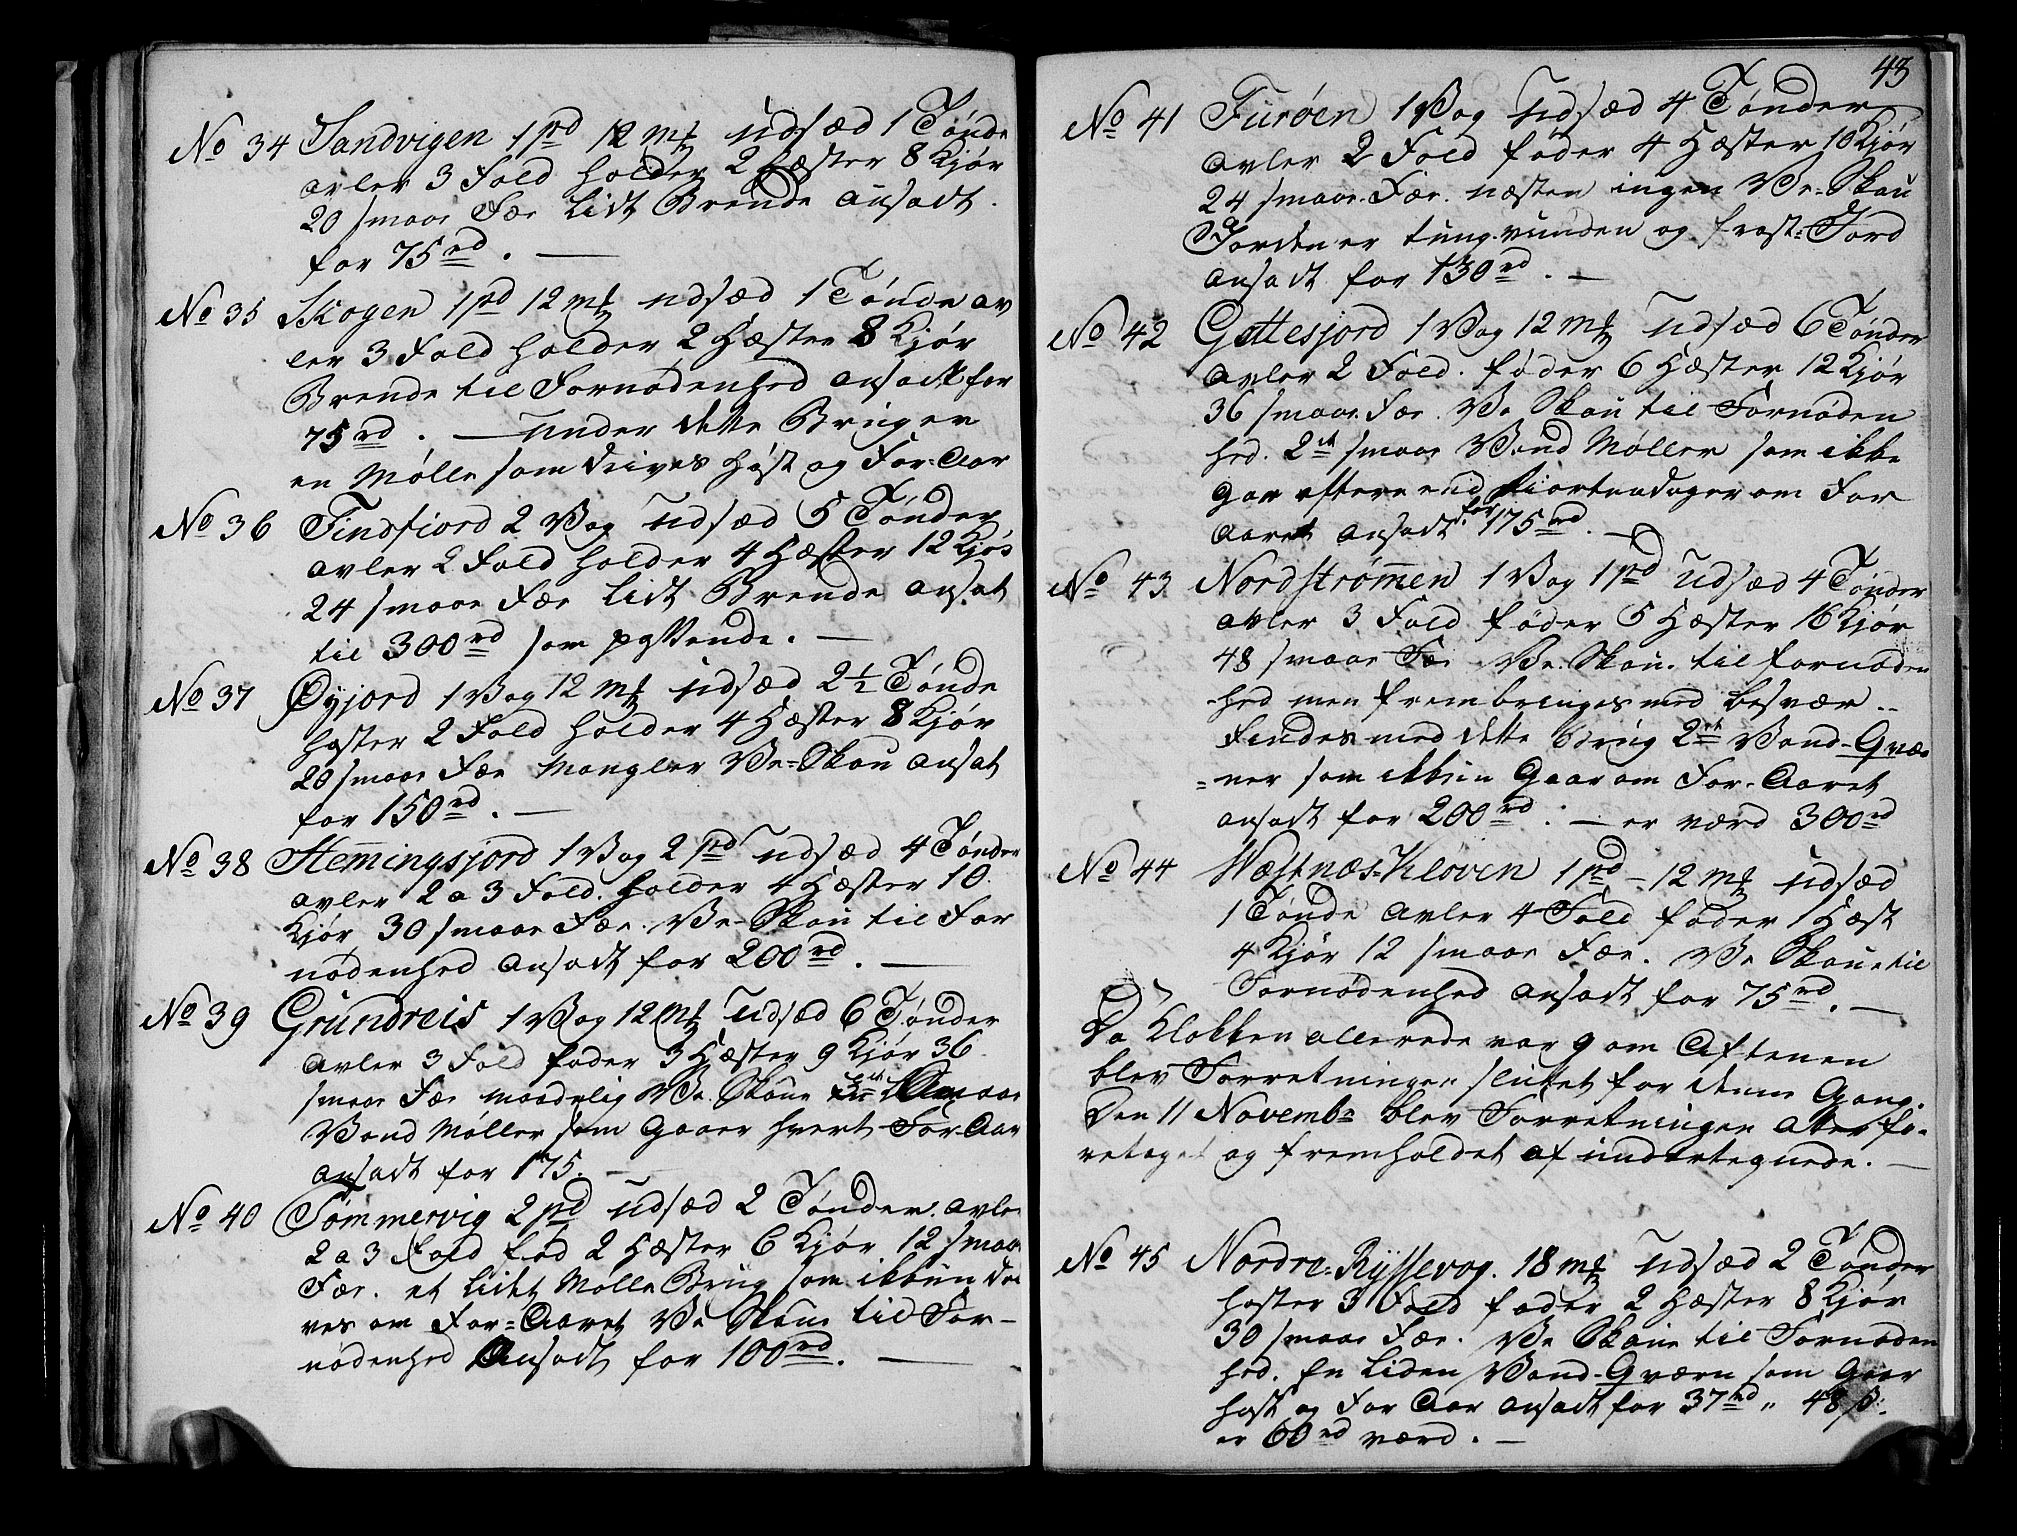 No 34 Sandvigen 1 pd 12 mk udsæd 1 Tønde
avler 3 Fold holder 2 Hæster 8 Kjør
20 smaae Fæe lidt Brende ansadt
for 75 rd. —
No 35 Skogen 1 pd 12 mk udsæd 1 Tønde av
ler 3 Fold holder 2 Hæster 8 Kjør
Brende til Fornødenhed ansadt for
75 rd. — under dette Bruger
en Mølle som drives høst og For-Aar
No 36 Findfiord 2 Vog udsæd 5 Tønder
avler 2 Fold holder 4 Hæster 12 Kjør
24 smaae Fæe lidt Brende ansat
til 300 rd som
No 37 Øyjord 1 Vog 12 mk udsæd 2½ Tønde
høster 2 Fold holder 4 Hæster 8 Kjør
20 smaae Fæe Mangler Ve-Skou ansat
for 150 rd. —
No 38 Hemingsjord 1 Vog 2 pd udsæd 4 Tønder
avler 2 a 3 Fold. holder 4 Hæster 10
Kjør 30 smaae Fæe. Ve-Skou til For
nødenhed ansadt for 200 rd. —
No 39 Grundreis 1 Vog 12 mk udsæd 6 Tønder
avler 3 Fold føder 3 Hæster 9 Kjør 36
smaae Fæe maadelig Ve Skou smaae
Vand Møller som Gaaer hvert For-Aar
ansadt for 175. —
No 40 Sømmervig 2 pd udsæd 2 Tønder avler
2 a 3 Fold fød 2 Hæster 6 Kjør 12 smaae
Fæe. et lidet Mølle Brug som ikkun dri
ves om For-Aaret Ve Skou til For-
nødenhed Ansadt for 100 rd. —
43
No 41 Furøen 1 Vog udsæd 4 Tønder
avler 2 Fold føder 4 Hæster 10 Kjør
24 smaae Fæe. næsten ingen Ve-Skou
Jorden er tung-vunden og frost-Jord
ansadt for 130 rd. —
No 42 Gottesjord 1 Vog 12 mk udsæd 6 Tønder
avler 2 Fold. føder 6 Hæster 12 Kjør
36 smaae Fæe. Ve Skou til Fornøden
hed. 2de smaae Vand Møller som ikke
gaar end fiorten dager om For
Aaret ansadt for 175 rd. —
No 43 Nordstrømen 1 Vog 1 pd udsæd 4 Tønder
avler 3 Fold føder 5 Hæster 16 Kjør
48 smaae Fæe Ve-Skou. til fornøden
-hed men frembringes med besvær..
findes med dette Brug 2de Vand-Qvæ
=ner som ikkun Gaar om For-Aaret
ansadt for 200 rd. — er værd 300 rd
No 44 Wæstnæs-Kløven 1 pd - 12 mk udsæd
1 Tønde avler 4 Fold føder 1 Hæst
4 Kjør 12 smaae Fæe. Ve Skou til
Fornødenhed ansadt for 75 rd. —
Da Klokken allerede var 9 om Aftenen
blev Forretningen sluttet for denne Gang.
Den 11 Novembr blev Forretningen atter fo-
retaget og fremholdet af undertegnede. —
No 45 Nordre-Ryssevog. 18 mk udsæd 2 Tønder
høster 3 Fold føder 2 Hæster 8 Kjør
30 smaae Fæe. Ve Skou til Fornøden
hed. En liden Vand-Qværn som Gaar
høst og For Aar ansadt for 37 rd „ 48 ß.
er 60 rd værd. —